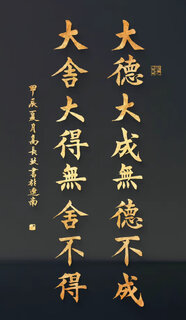 大德大成無德不成
大舍大得無舍不得
甲辰夏月高長文書於遼南